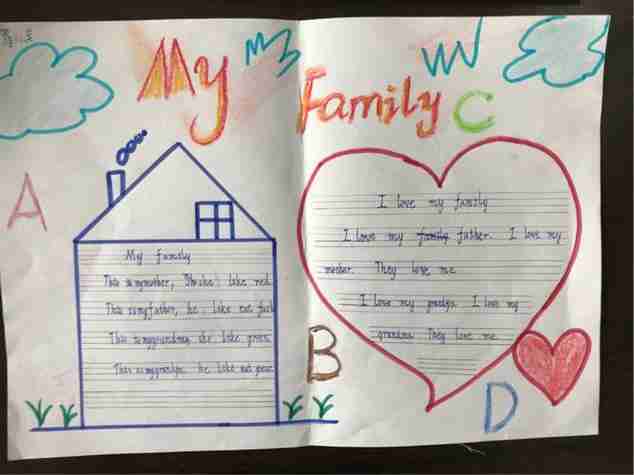 My Family
A
B
C
D
My Family
This is my mother, She like red.
This is my father, he like eat
This is my grandma, she like green.
This is my grandpa. he like eat pear.
I love my family
I love my family father. I love my
mother. They love me.
I love my grandpa. I love my
grandma. They love me.